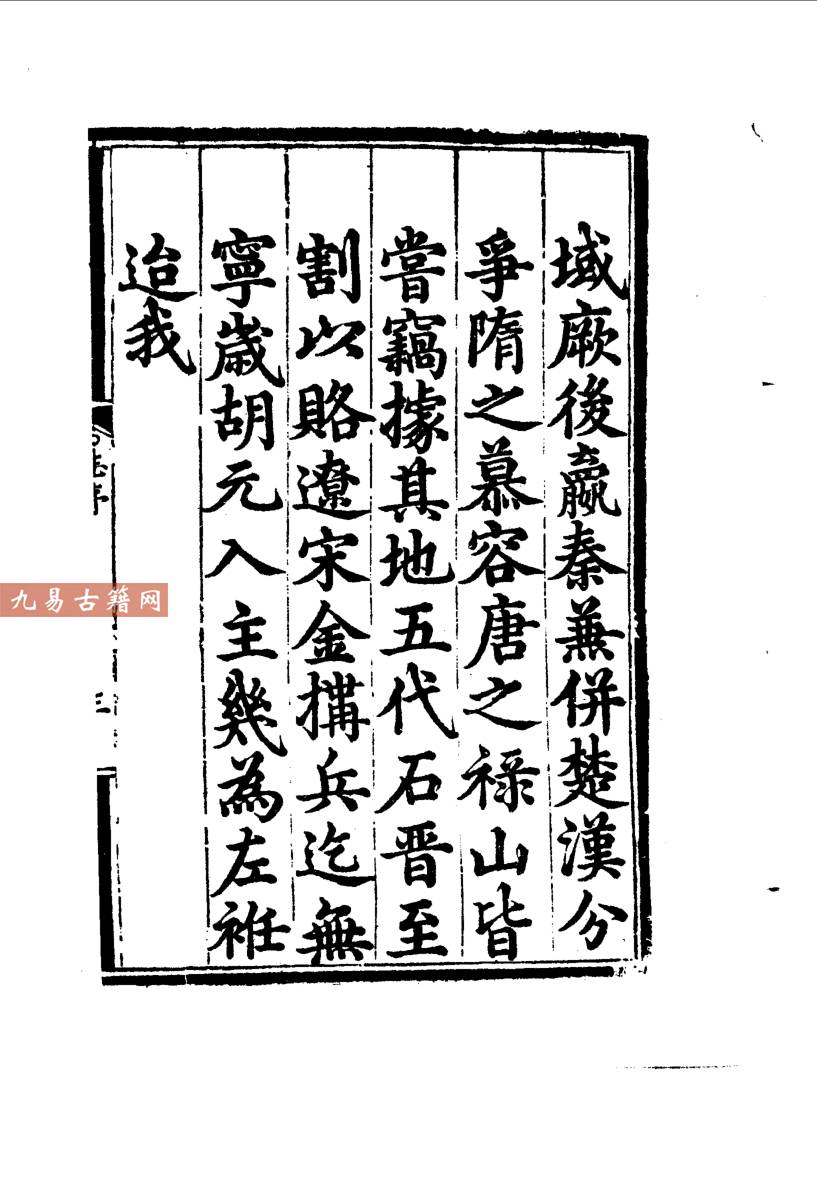 域厥後嬴秦兼併楚漢分
爭隋之慕容唐之祿山皆
嘗竊據其地五代石晋至
割以賂遼宋金搆兵迄無
寧歲胡元入主幾為左袵
迨我
志序
三
九易古籍网